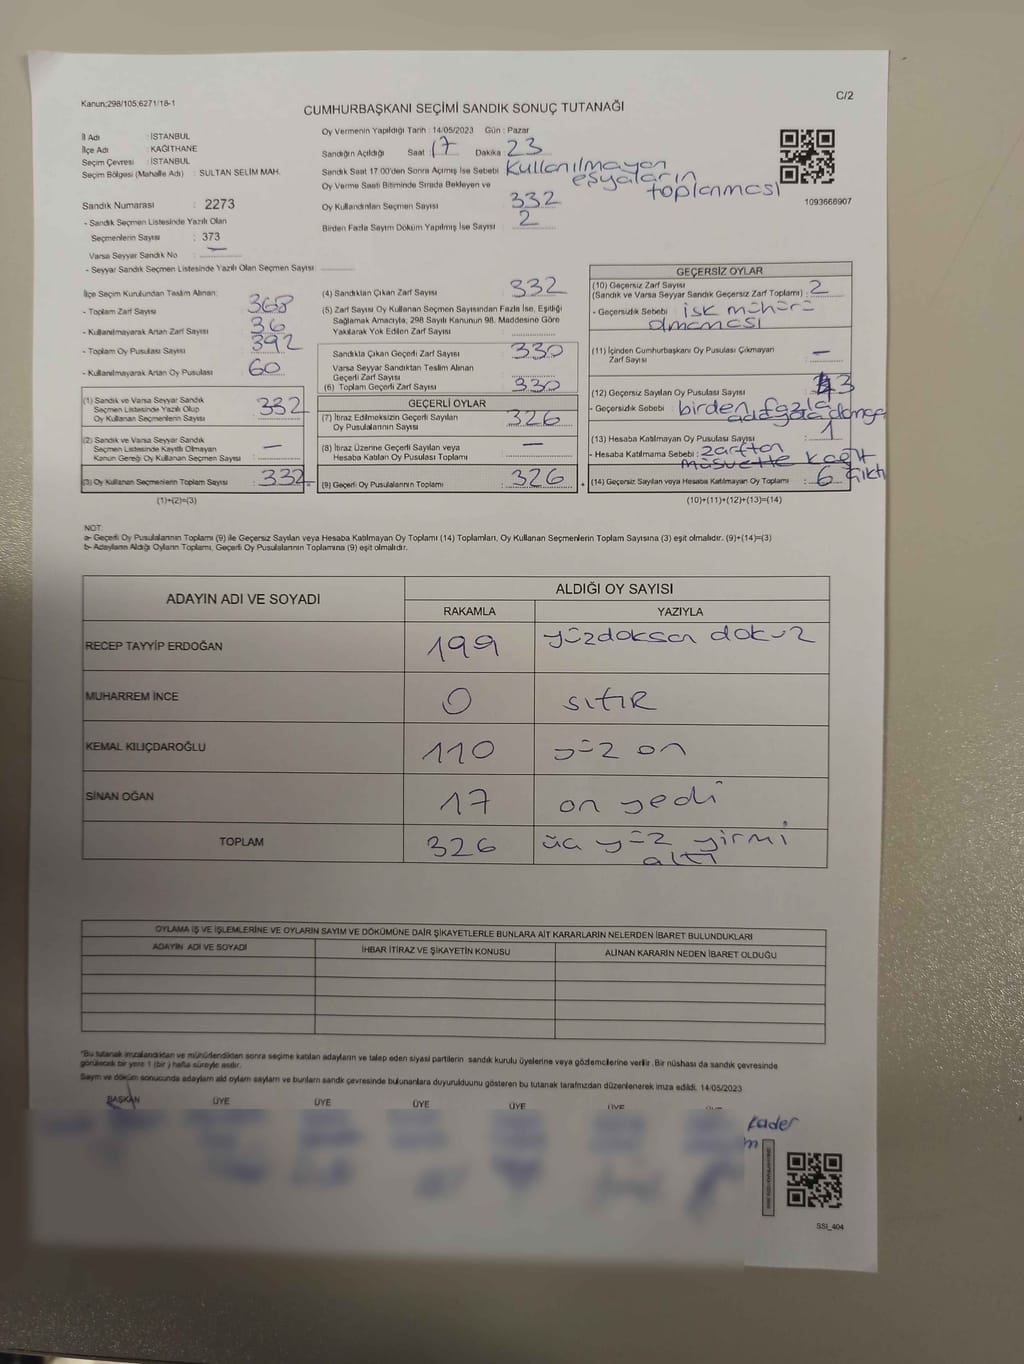 Kanun;298/105;6271/18-1
C/2
CUMHURBAŞKANI SEÇİMİ SANDIK SONUÇ TUTANAĞI
İl Adı : İSTANBUL
İlçe Adı : KAĞITHANE
Seçim Çevresi : İSTANBUL
Seçim Bölgesi (Mahalle Adı) : SULTAN SELİM MAH.
Sandık Numarası : 2273
- Sandık Seçmen Listesinde Yazılı Olan
Seçmenlerin Sayısı : 373
Varsa Seyyar Sandık No : —
- Seyyar Sandık Seçmen Listesinde Yazılı Olan Seçmen Sayısı :
Oy Vermenin Yapıldığı Tarih : 14/05/2023 Gün : Pazar
Sandığın Açıldığı Saat 17 Dakika 23
Sandık Saat 17.00'den Sonra Açımış İse Sebebi Kullanılmayan
eşyaların
toplanması
Oy Verme Saati Bitiminde Sırada Bekleyen ve
Oy Kullandırılan Seçmen Sayısı 332
Birden Fazla Sayım Döküm Yapılmış İse Sayısı 2
1093666907
İlçe Seçim Kurulundan Teslim Alınan:
- Toplam Zarf Sayısı 368
- Kullanılmayarak Artan Zarf Sayısı 36
- Toplam Oy Pusulası Sayısı 392
- Kullanılmayarak Artan Oy Pusulası 60
(1) Sandık ve Varsa Seyyar Sandık
Seçmen Listesinde Yazılı Olup
Oy Kullanan Seçmenlerin Sayısı : 332
(2) Sandık ve Varsa Seyyar Sandık
Seçmen Listesinde Kayıtlı Olmayan
Kanun Gereği Oy Kullanan Seçmen Sayısı : —
(3) Oy Kullanan Seçmenlerin Toplam Sayısı : 332
(1)+(2)=(3)
(4) Sandıktan Çıkan Zarf Sayısı : 332
(5) Zarf Sayısı Oy Kullanan Seçmen Sayısından Fazla İse, Eşitliği
Sağlamak Amacıyla, 298 Sayılı Kanunun 98. Maddesine Göre
Yakılarak Yok Edilen Zarf Sayısı :
Sandıkta Çıkan Geçerli Zarf Sayısı : 330
Varsa Seyyar Sandıktan Teslim Alınan
Geçerli Zarf Sayısı :
(6) Toplam Geçerli Zarf Sayısı : 330
GEÇERLİ OYLAR
(7) İtiraz Edilmeksizin Geçerli Sayılan
Oy Pusulasının Sayısı : 326
(8) İtiraz Üzerine Geçerli Sayılan veya
Hesaba Katılan Oy Pusulası Toplamı : —
(9) Geçerli Oy Pusulalarının Toplamı : 326
GEÇERSİZ OYLAR
(10) Geçersiz Zarf Sayısı
(Sandık ve Varsa Seyyar Sandık Geçersiz Zarf Toplamı) : 2
- Geçersizlik Sebebi : isk mühürü
olmaması
(11) İçinden Cumhurbaşkanı Oy Pusulası Çıkmayan
Zarf Sayısı : —
(12) Geçersiz Sayılan Oy Pusulası Sayısı : 3
- Geçersizlik Sebebi : birden fazla
adaya damga
(13) Hesaba Katılmayan Oy Pusulası Sayısı : 1
- Hesaba Katılmama Sebebi : zarftan
müsvette kağıt
çıktı
(14) Geçersiz Sayılan veya Hesaba Katılmayan Oy Toplamı : 6
(10)+(11)+(12)+(13)=(14)
NOT:
a- Geçerli Oy Pusulalarının Toplamı (9) ile Geçersiz Sayılan veya Hesaba Katılmayan Oy Toplamı (14) Toplamları, Oy Kullanan Seçmenlerin Toplam Sayısına (3) eşit olmalıdır. (9)+(14)=(3)
b- Adayların Aldığı Oyların Toplamı, Geçerli Oy Pusulalarının Toplamına (9) eşit olmalıdır.
ADAYIN ADI VE SOYADI
ALDIĞI OY SAYISI
RAKAMLA YAZIYLA
RECEP TAYYİP ERDOĞAN 199 yüzdoksan dokuz
MUHARREM İNCE 0 sıfır
KEMAL KILIÇDAROĞLU 110 yüz on
SİNAN OĞAN 17 on yedi
TOPLAM 326 üç yüz yirmi
altı
OYLAMA İŞ VE İŞLEMLERİNE VE OYLARIN SAYIM VE DÖKÜMÜNE DAİR ŞİKAYETLERLE BUNLARA AİT KARARLARIN NELERDEN İBARET BULUNDUKLARI
ADAYIN ADI VE SOYADI İHBAR İTİRAZ VE ŞİKAYETİN KONUSU ALINAN KARARIN NEDEN İBARET OLDUĞU
*Bu tutanak imzalandıktan ve mühürlendikten sonra seçime katılan adayların ve talep eden siyasi partilerin sandık kurulu üyelerine veya gözlemcilerine verilir. Bir nüshası da sandık çevresinde
görülecek bir yere 1 (bir) hafta süreyle asılır.
Sayım ve döküm sonucunda adayların aldı oyların sayıları ve bunların sandık çevresinde bulunanlara duyurulduğunu gösteren bu tutanak tarafımızdan düzenlenerek imza edildi. 14/05/2023
BAŞKAN ÜYE ÜYE ÜYE ÜYE ÜYE
Kader
SSI_404